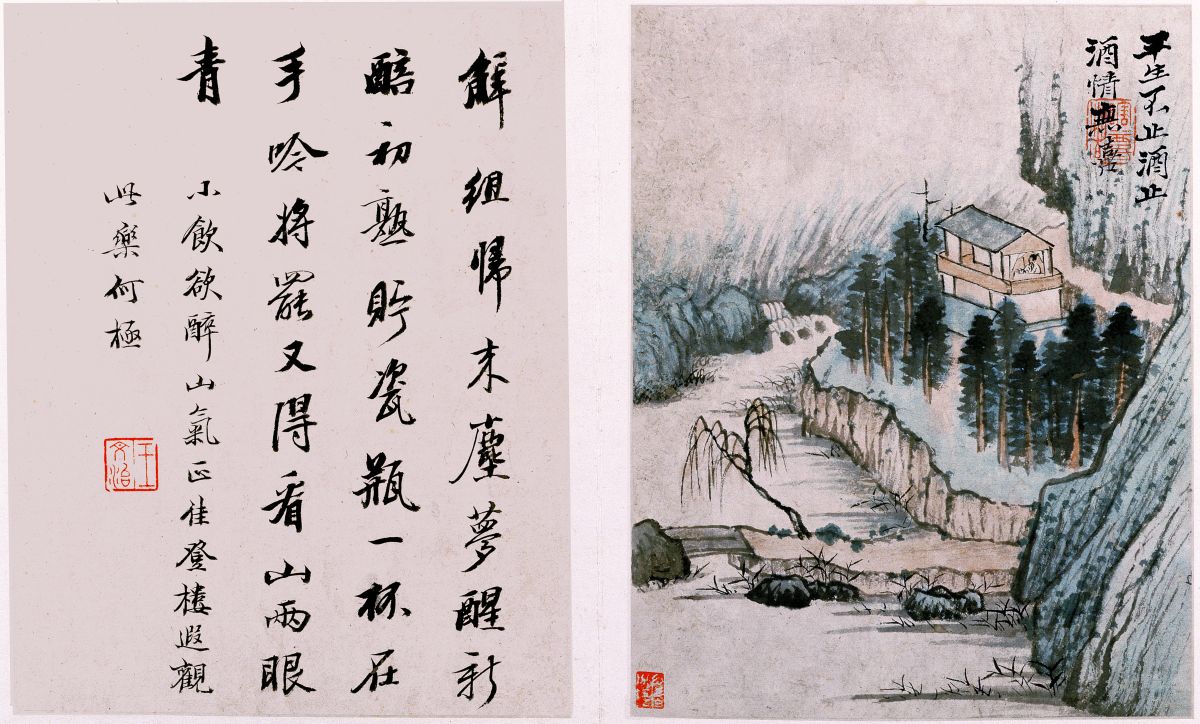 平生不止酒止
酒情無喜
解組歸來塵夢醒新
醅初熟貯瓷瓶一杯在
手吟將罷又得看山兩眼
青
小飲欲醉山氣正佳登樓遐觀
此樂何極
王文治